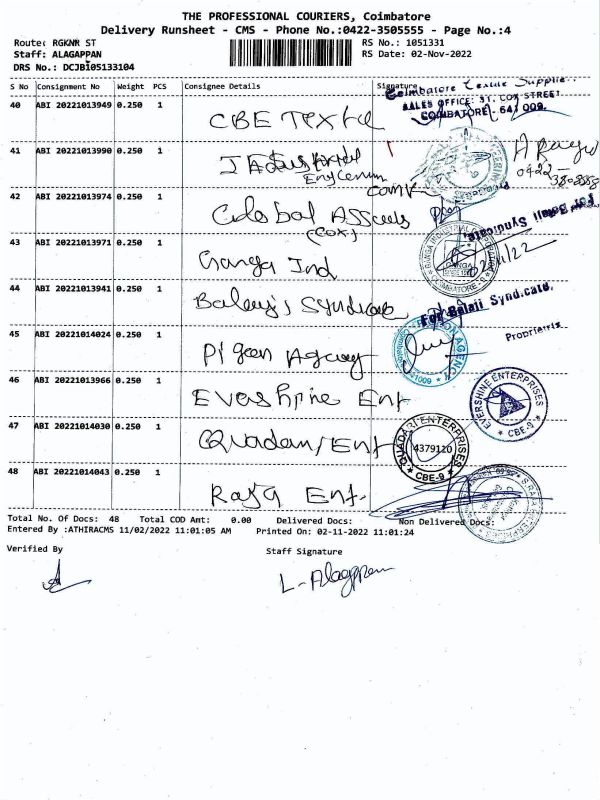 THE PROFESSIONAL COURIERS, Coimbatore
Delivery Runsheet - CMS - Phone No.:0422-3505555 - Page No.:4
Route: RGKNR ST RS No.: 1051331
Staff: ALAGAPPAN RS Date: 02-Nov-2022
DRS No.: DCJBI05133104
S No Consignment No Weight PCS Consignee Details Signature
Coimbatore Textile Supplie..
SALES OFFICE: 31, COX STREET
COIMBATORE - 641 009.
40 ABI 20221013949 0.250 1 CBE Textile
41 ABI 20221013990 0.250 1 Industrial
0422-
42 ABI 20221013974 0.250 1 Global
(COX)
For Balaji Syndicate,
43 ABI 20221013971 0.250 1 Ganga Ind
GANGA
COIMBATORE
44 ABI 20221013941 0.250 1 Balaji Syndicate
For Balaji Syndicate,
Proprietrix
45 ABI 20221014024 0.250 1 Pigeon Agency
AGENCY
46 ABI 20221013966 0.250 1 Evashine Ent
EVERSHINE ENTERPRISES
CBE-9
47 ABI 20221014030 0.250 1 Quadari Ent
QUADARI ENTERPRISES
4379110
CBE-9
48 ABI 20221014043 0.250 1 Raja Ent.
Total No. Of Docs: 48 Total COD Amt: 0.00 Delivered Docs: Non Delivered Docs:
Entered By :ATHIRACMS 11/02/2022 11:01:05 AM Printed On: 02-11-2022 11:01:24
Verified By Staff Signature
L. Alagappan